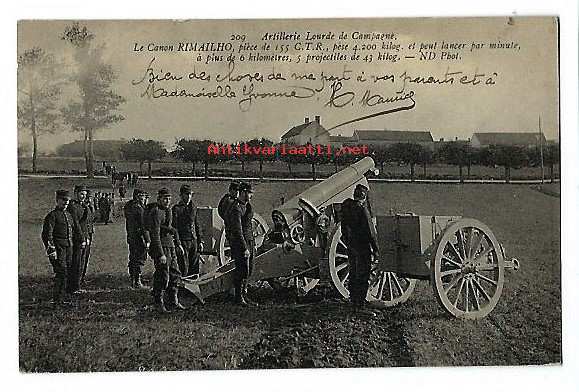 209 Artillerie Lourde de Campagne.
Le Canon RIMAILHO, pièce de 155 C.T.R., pèse 4.200 kilog. et peut lancer par minute,
à plus de 6 kilomètres, 5 projectiles de 43 kilog. — ND Phot.
Bien des choses de ma part à vos parents et à
Mademoiselle Yvonne. H. Maurice
www.antikvariaatti.net